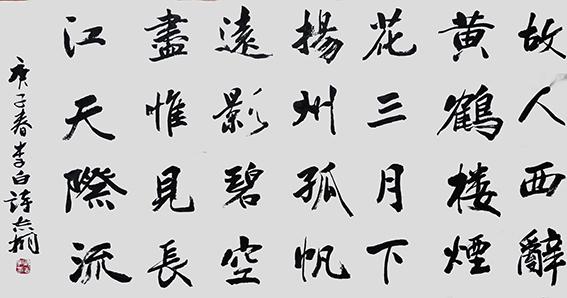 故人西辭
黄鶴楼煙
花三月下
揚州孤帆
遠影碧空
盡惟見長
江天際流
庚子春李白詩